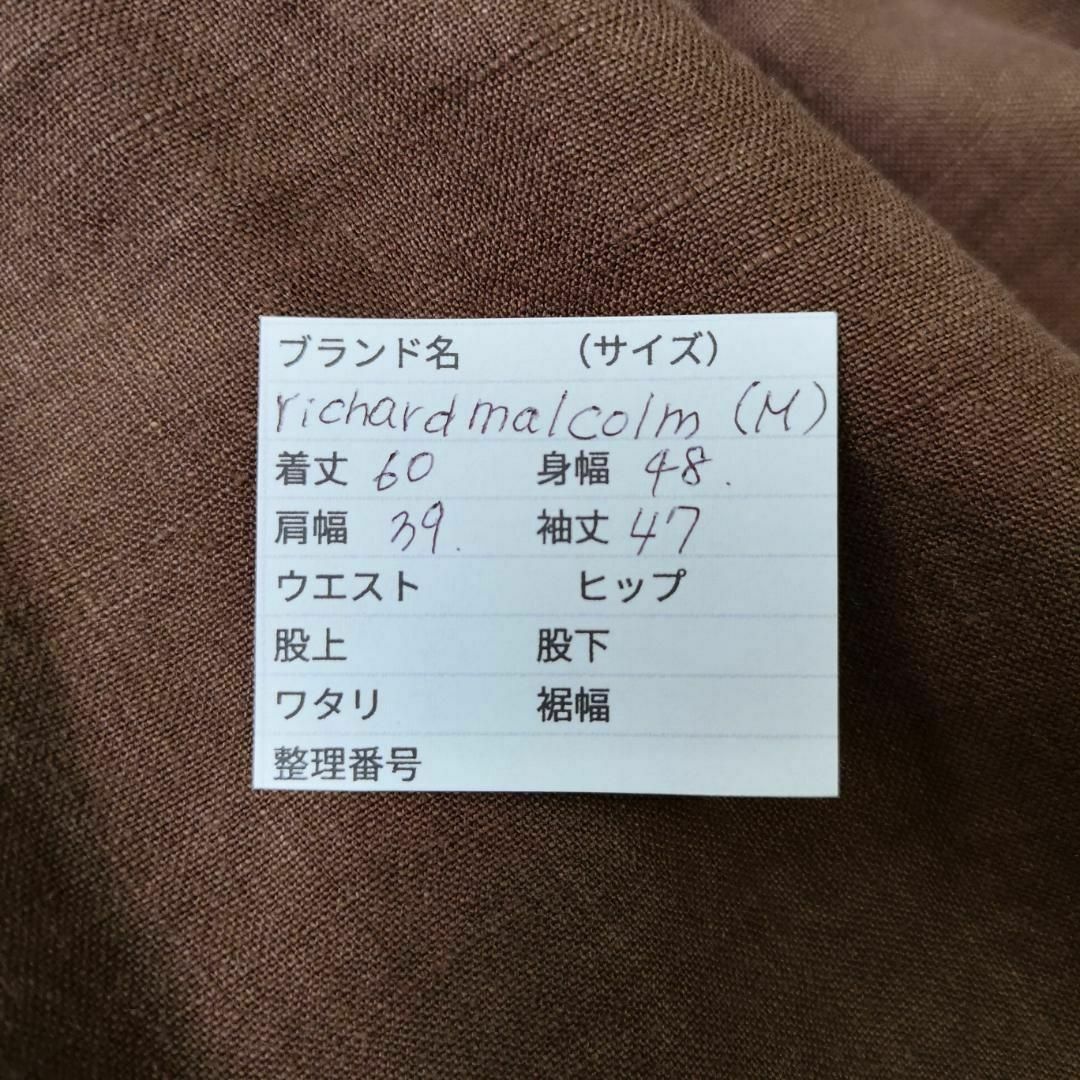 ブランド名 （サイズ）
richardmalcolm (M)
着丈 60 身幅 48.
肩幅 39. 袖丈 47
ウエスト ヒップ
股上 股下
ワタリ 裾幅
整理番号